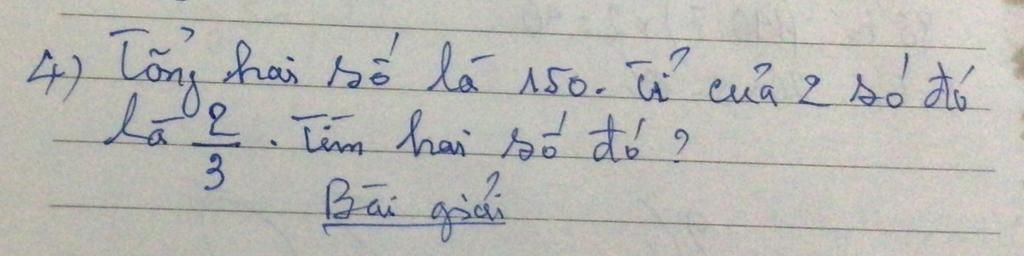 4) Tổng hai số là 150. Tỉ của 2 số đó
là 2/3. Tìm hai số đó?
Bài giải